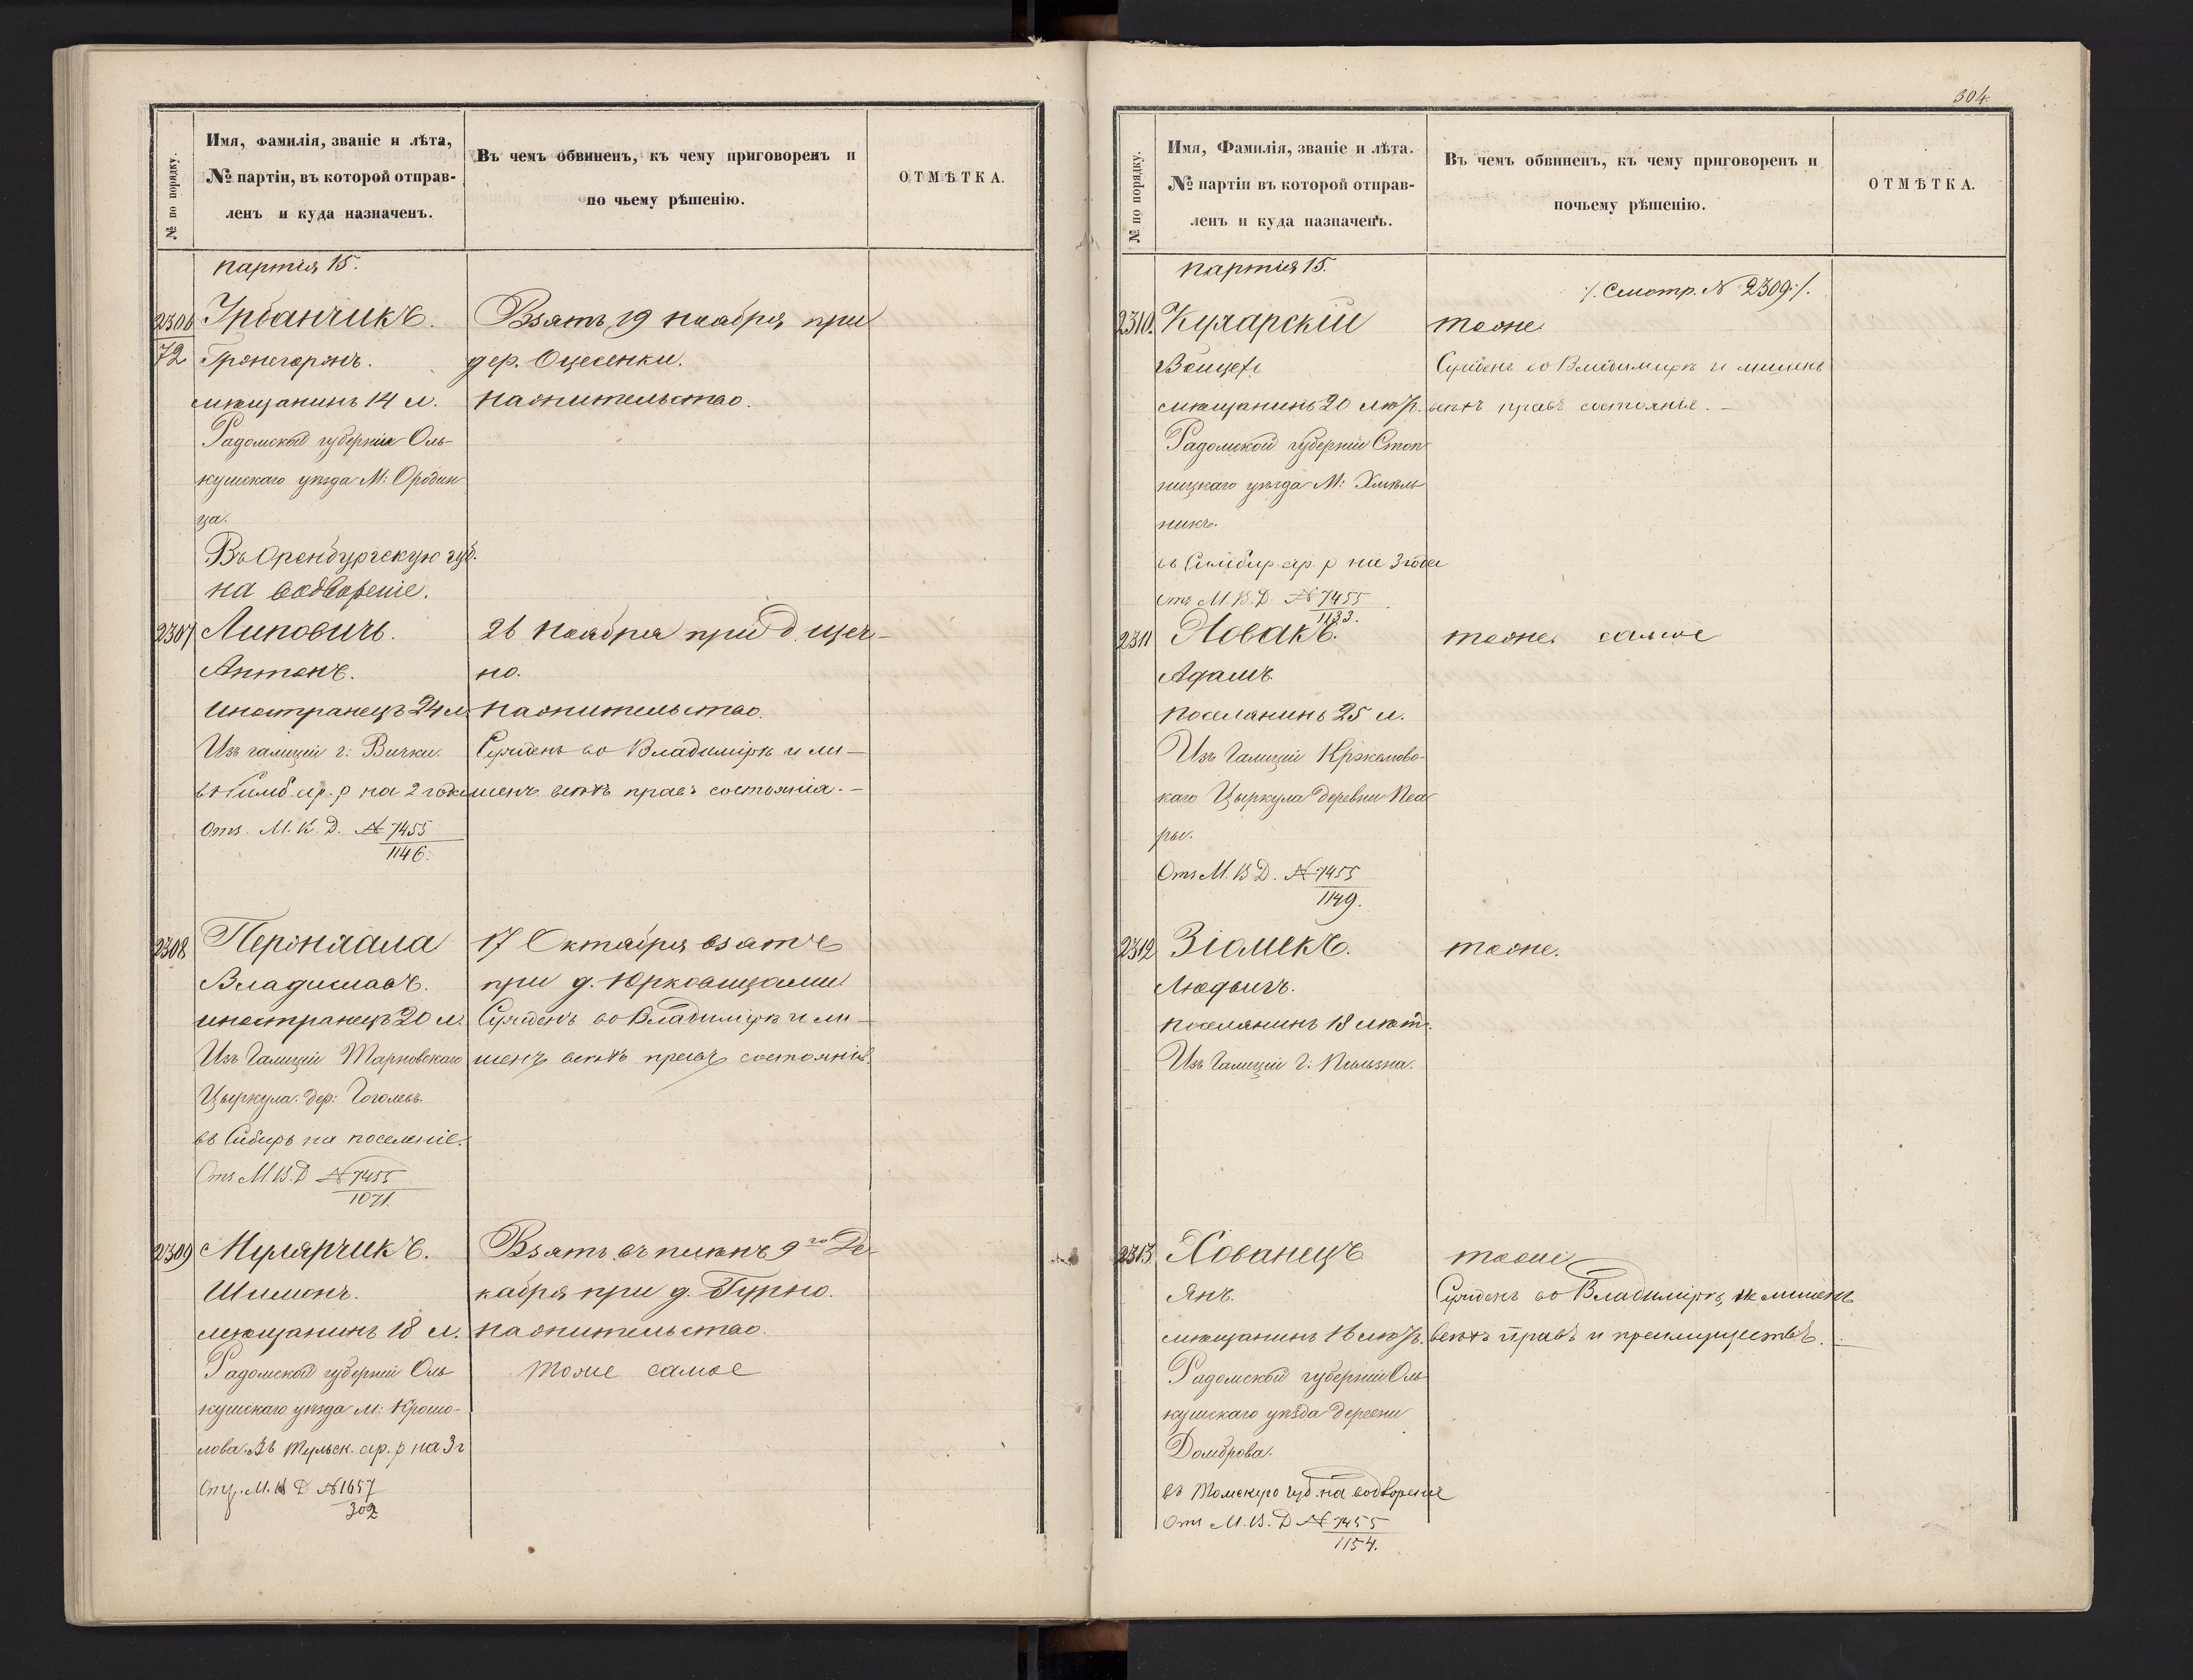 № по порядку.
Имя, Фамилія, званіе и лѣта,
№ партіи, въ которой отправ-
ленъ и куда назначенъ.
Въ чемъ обвиненъ, къ чему приговоренъ и
по чьему рѣшенію.
ОТМѢТКА.
партія 15.
2306
72
Урбанчикъ.
мѣщанинъ 14 л.
Радомской губерніи Оль-
кушскаго уѣзда М:
ца.
Въ Оренбургскую губ.
на водвореніе.
Взятъ 19 ноября при
дер.
на жительство.
2307
Липовичъ.
Антонъ.
иностранецъ 24 л.
Изъ галиціи г:
въ Симб. ар. р на 2 года
Отз. М. В. Д. № 7455
1146.
26 Ноября при д.
но.
на жительство.
Сужденъ во Владимірѣ и ли-
шенъ всѣхъ правъ состоянія. -
2308
Владиславъ.
иностранецъ 20 л.
Изъ Галиціи Тарновскаго
Цыркула. дер:
въ Сибирь на поселеніе.
Отз М В. Д № 7455
1071.
17 Октября взятъ
при д. Юрковицами
Сужденъ во Владимірѣ и ли-
шенъ всѣхъ правъ состоянія.
2309
Мулярчикъ.
Шимонъ.
мѣщанинъ 18 л.
Радомской губерніи Оль
кушскаго уѣзда М: Кромо-
лова. Въ Тульск. ар. р на 3 г
М. В Д № 1657
302
Взятъ въ плѣнъ 9го Де-
кабря при д. Гурно.
на жительство.
Тоже самое
304.
№ по порядку.
Имя, Фамилія, званіе и лѣта.
№ партіи въ которой отправ-
ленъ и куда назначенъ.
Въ чемъ обвиненъ, къ чему приговоренъ и
почьему рѣшенію.
ОТМѢТКА.
партія 15.
/. Смотр. № 2309 ./.
2310.
Кухарскій
Войцех
мѣщанинъ 20 лѣтъ.
Радомской губерніи Стоп
ницкаго уѣзда М: Хмѣль
никъ.
въ Симбир. ар. р на 3 года
отз М. В. Д. № 7455
1133.
тоже.
Сужденъ во Владимірѣ и лишенъ
всѣхъ правъ состоянія. -
2311
Новакъ.
Адамъ.
поселянинъ 25 л.
Изъ Галиціи
каго Цыркула деревни
ры.
Отз М. В Д. № 7455
1149.
тоже самое
2312
Зіомекъ.
Людвигъ.
поселянинъ 18 лѣтъ.
Изъ Галиціи Г: Пильзна.
тоже.
2313
Хованецъ
Янъ.
мѣщанинъ 16 лѣтъ.
Радомской губерніи Оль
кушскаго уѣзда деревни
Домброва.
въ Томскую губ. на водвореніе
Отз М. В. Д № 7455
1154.
тоже
Сужденъ во Владимірѣ, и лишенъ
всѣхъ правъ и преимуществъ. -